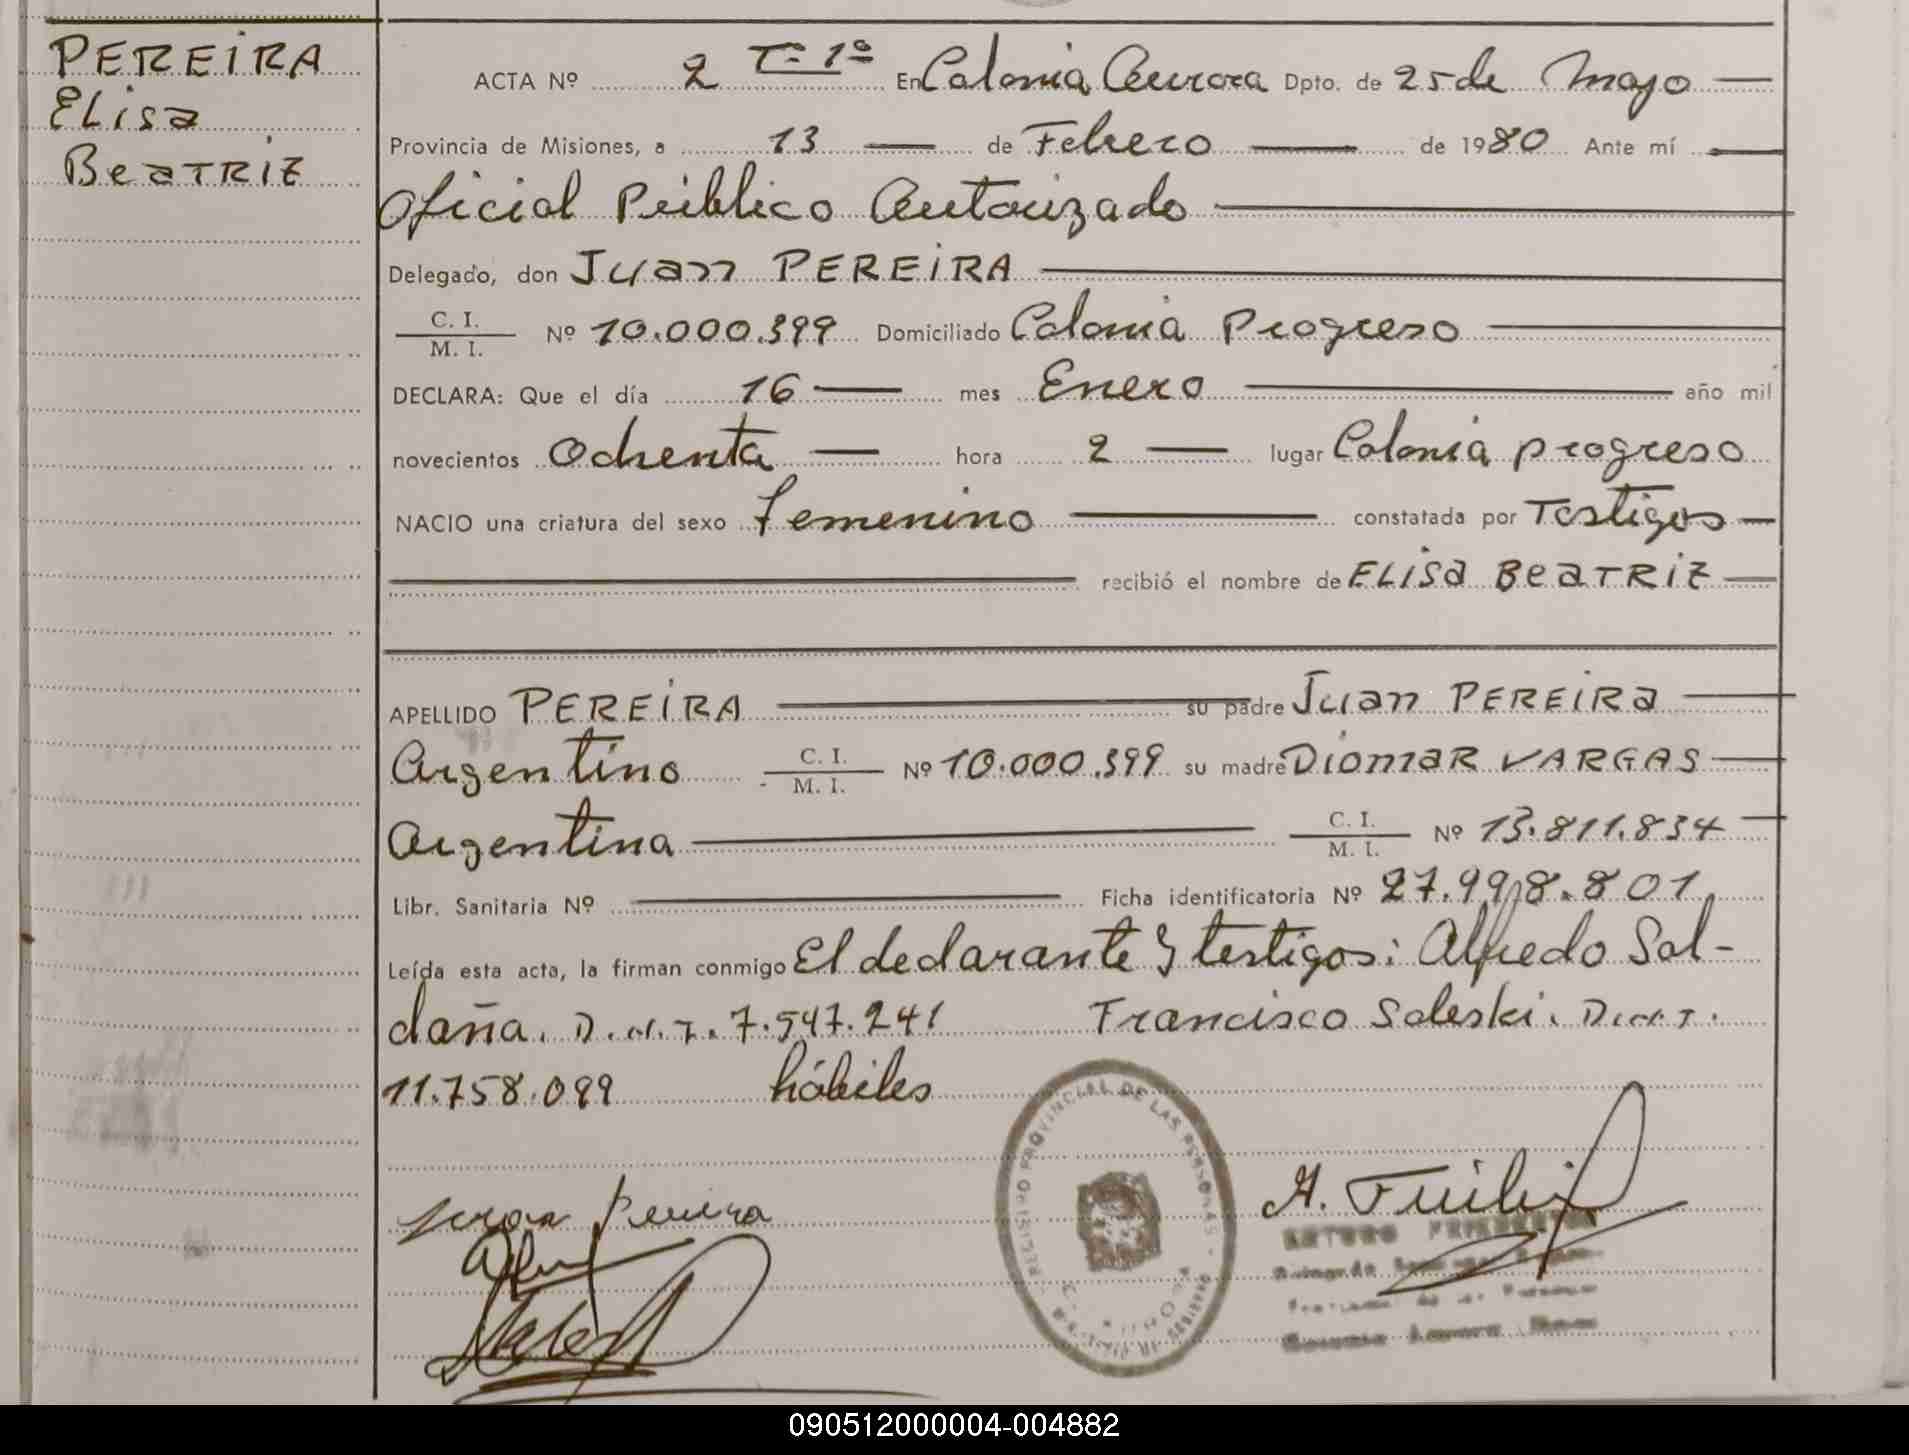 PEREIRA
ELisa
BeaTRIZ
ACTA Nº 2 Tº 1º En Colonia Aurora Dpto. de 25 de Mayo
Provincia de Misiones, a 13 de Febrero de 1980 Ante mí
Oficial Público Autorizado
Delegado, don Juan PEREIRA
C. I.
M. I. Nº 10.000.399 Domiciliado Colonia Progreso
DECLARA: Que el día 16 mes Enero año mil
novecientos Ochenta hora 2 lugar Colonia progreso
NACIO una criatura del sexo femenino constatada por Testigos
recibió el nombre de ELISa BeaTRIZ
APELLIDO PEREIRA su padre Juan PEREIRa
Argentino C. I.
M. I. Nº 10.000.399 su madre DiomaR VARGAS
Argentina C. I.
M. I. Nº 13.811.834
Libr. Sanitaria Nº Ficha identificatoria Nº 27.998.801
Leída esta acta, la firman conmigo El declarante y testigos: Alfredo Sal-
daña. D.N.I. 7.547.241 Francisco Saleski. D.N.I.
11.758.099 hábiles
REGISTRO PROVINCIAL DE LAS PERSONAS
Pereira
ARTURO
090512000004-004882